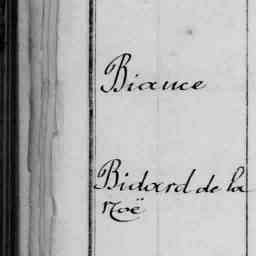 Biauce
Bidard de la
Noë